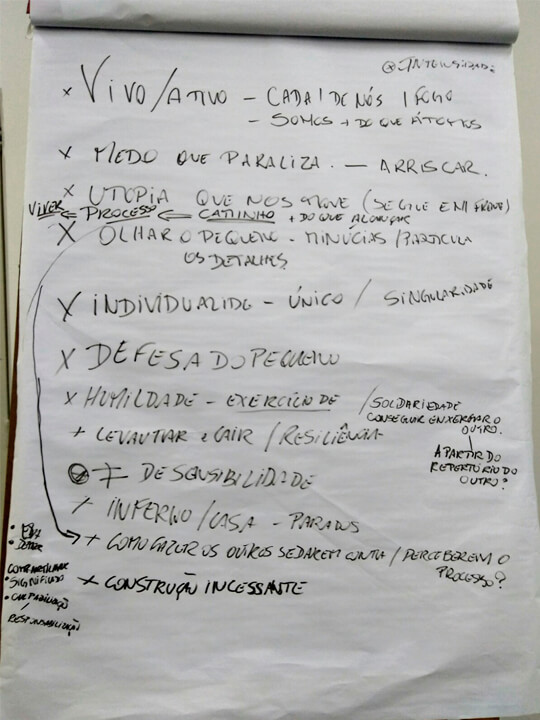 @INTENSIDADE
x VIVO/ATIVO – CADA 1 DE NÓS 1 FOGO
– SOMOS + DO QUE ÁTOMOS
x MEDO QUE PARALIZA. — ARRISCAR.
x UTOPIA QUE NOS MOVE (SEGUE EM FRENTE)
VIVER ⇐ PROCESSO ⇐ CAMINHO + DO QUE ALCANÇAR
X OLHAR O PEQUENO - MINÚCIAS/PARTÍCULA
OS DETALHES
X INDIVIDUALIDE – ÚNICO / SINGULARIDADE
X DEFESA DO PEQUENO
x HUMILDADE – EXERCÍCIO DE / SOLDARIEDADE
CONSEGUIR ENXERGAR O
OUTRO.
+ LEVANTAR e CAIR / RESILIÊNCIA
A PARTIR DO
REPERTÓRIO DO
OUTRO?
≠ DE SENSIBILIDADE
/ INFERNO/CASA – 
+ COMO FAZER OS OUTROS SE DAREM CONTA / PERCEBEREM O
PROCESSO?
COMPARTILHAR
• SIGNIFICADO
/
RESPONSABILIZAÇÃO
+ CONSTRUÇÃO INCESSANTE